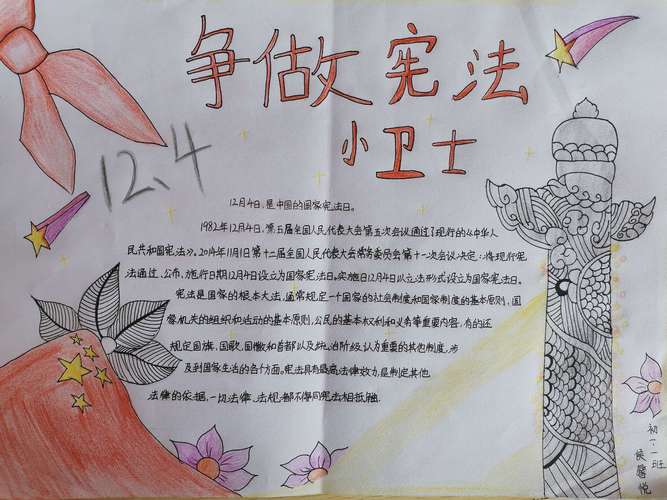 争做宪法
小卫士
12.4
12月4日,是中国的国家宪法日。
1982年12月4日,第五届全国人民代表大会第五次会议通过了现行的《中华人
民共和国宪法》。2014年11月1日第十二届全国人民代表大会常务委员会第十一次会议决定:将现行宪
法通过、公布、施行日期12月4日设立为国家宪法日。实施日12月4日以立法形式设立为国家宪法日。
宪法是国家的根本大法,通常规定一个国家的社会制度和国家制度的基本原则,国
家机关的组织和活动的基本原则,公民的基本权利和义务等重要内容,有的还
规定国旗、国歌、国徽和首都以及统治阶级认为重要的其他制度,涉
及到国家生活的各个方面。宪法具有最高法律效力,是制定其他
法律的依据,一切法律、法规都不得同宪法相抵触.
初一·一班
侯馨悦